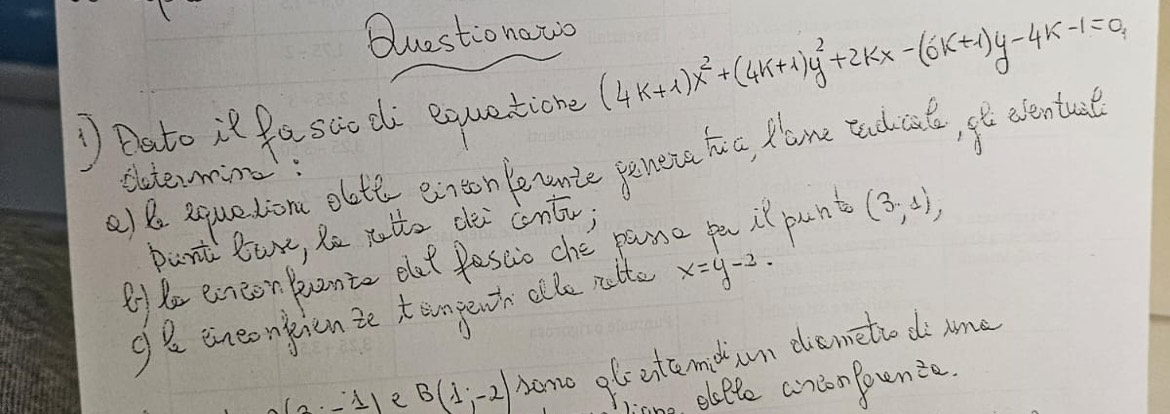 Questionario
1) Dato il fascio di equazione (4K+1)x²+(4K+1)y²+2Kx-(6K+1)y-4K-1=0,
determina:
a) le equazioni delle circonferenze generatrici, l'asse radicale, gli eventuali
punti base, la retta dei centri;
b) la circonferenza del fascio che passa per il punto (3;1);
c) le circonferenze tangenti alla retta x=y-2.
-1) e B(1;-2) sono gli estremi di un diametro di una
della circonferenza.